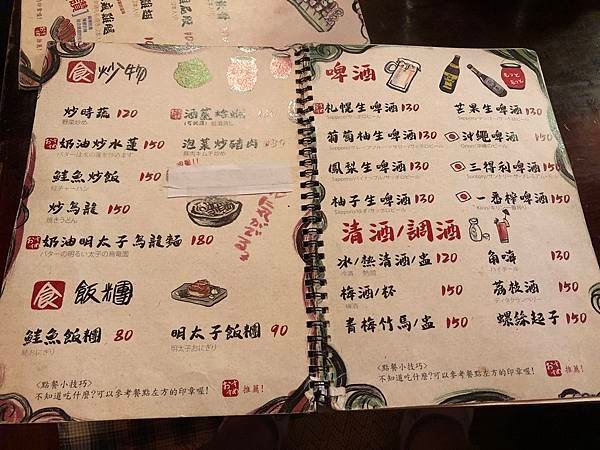 食 炒物
炒時蔬 120
野菜炒め
奶油炒水蓮 150
鮭魚炒飯 150
鮭チャーハン
炒烏龍 150
焼きうどん
奶油明太子烏龍麵 180
酒蒸蛤蜊
泡菜炒豬肉
豚肉キムチ炒め
食 飯糰
鮭魚飯糰 80
鮭おにぎり
明太子飯糰 90
明太子おにぎり
<點餐小技巧>
不知道吃什麼?可以參考餐點左方的印章喔!
推薦!
啤酒
札幌生啤酒 130
葡萄柚生啤酒 130
鳳梨生啤酒 130
柚子生啤酒 150
芒果生啤酒 130
沖繩啤酒 150
三得利啤酒 150
一番榨啤酒 150
清酒/調酒
冰/熱清酒/盅 120
冷酒 熱燗
梅酒/杯 150
梅酒
青梅竹馬/盅 150
角嗨 130
ハイボール
荔枝酒 150
螺絲起子 150
<點餐小技巧>
不知道吃什麼?可以參考餐點左方的印章喔!
推薦!